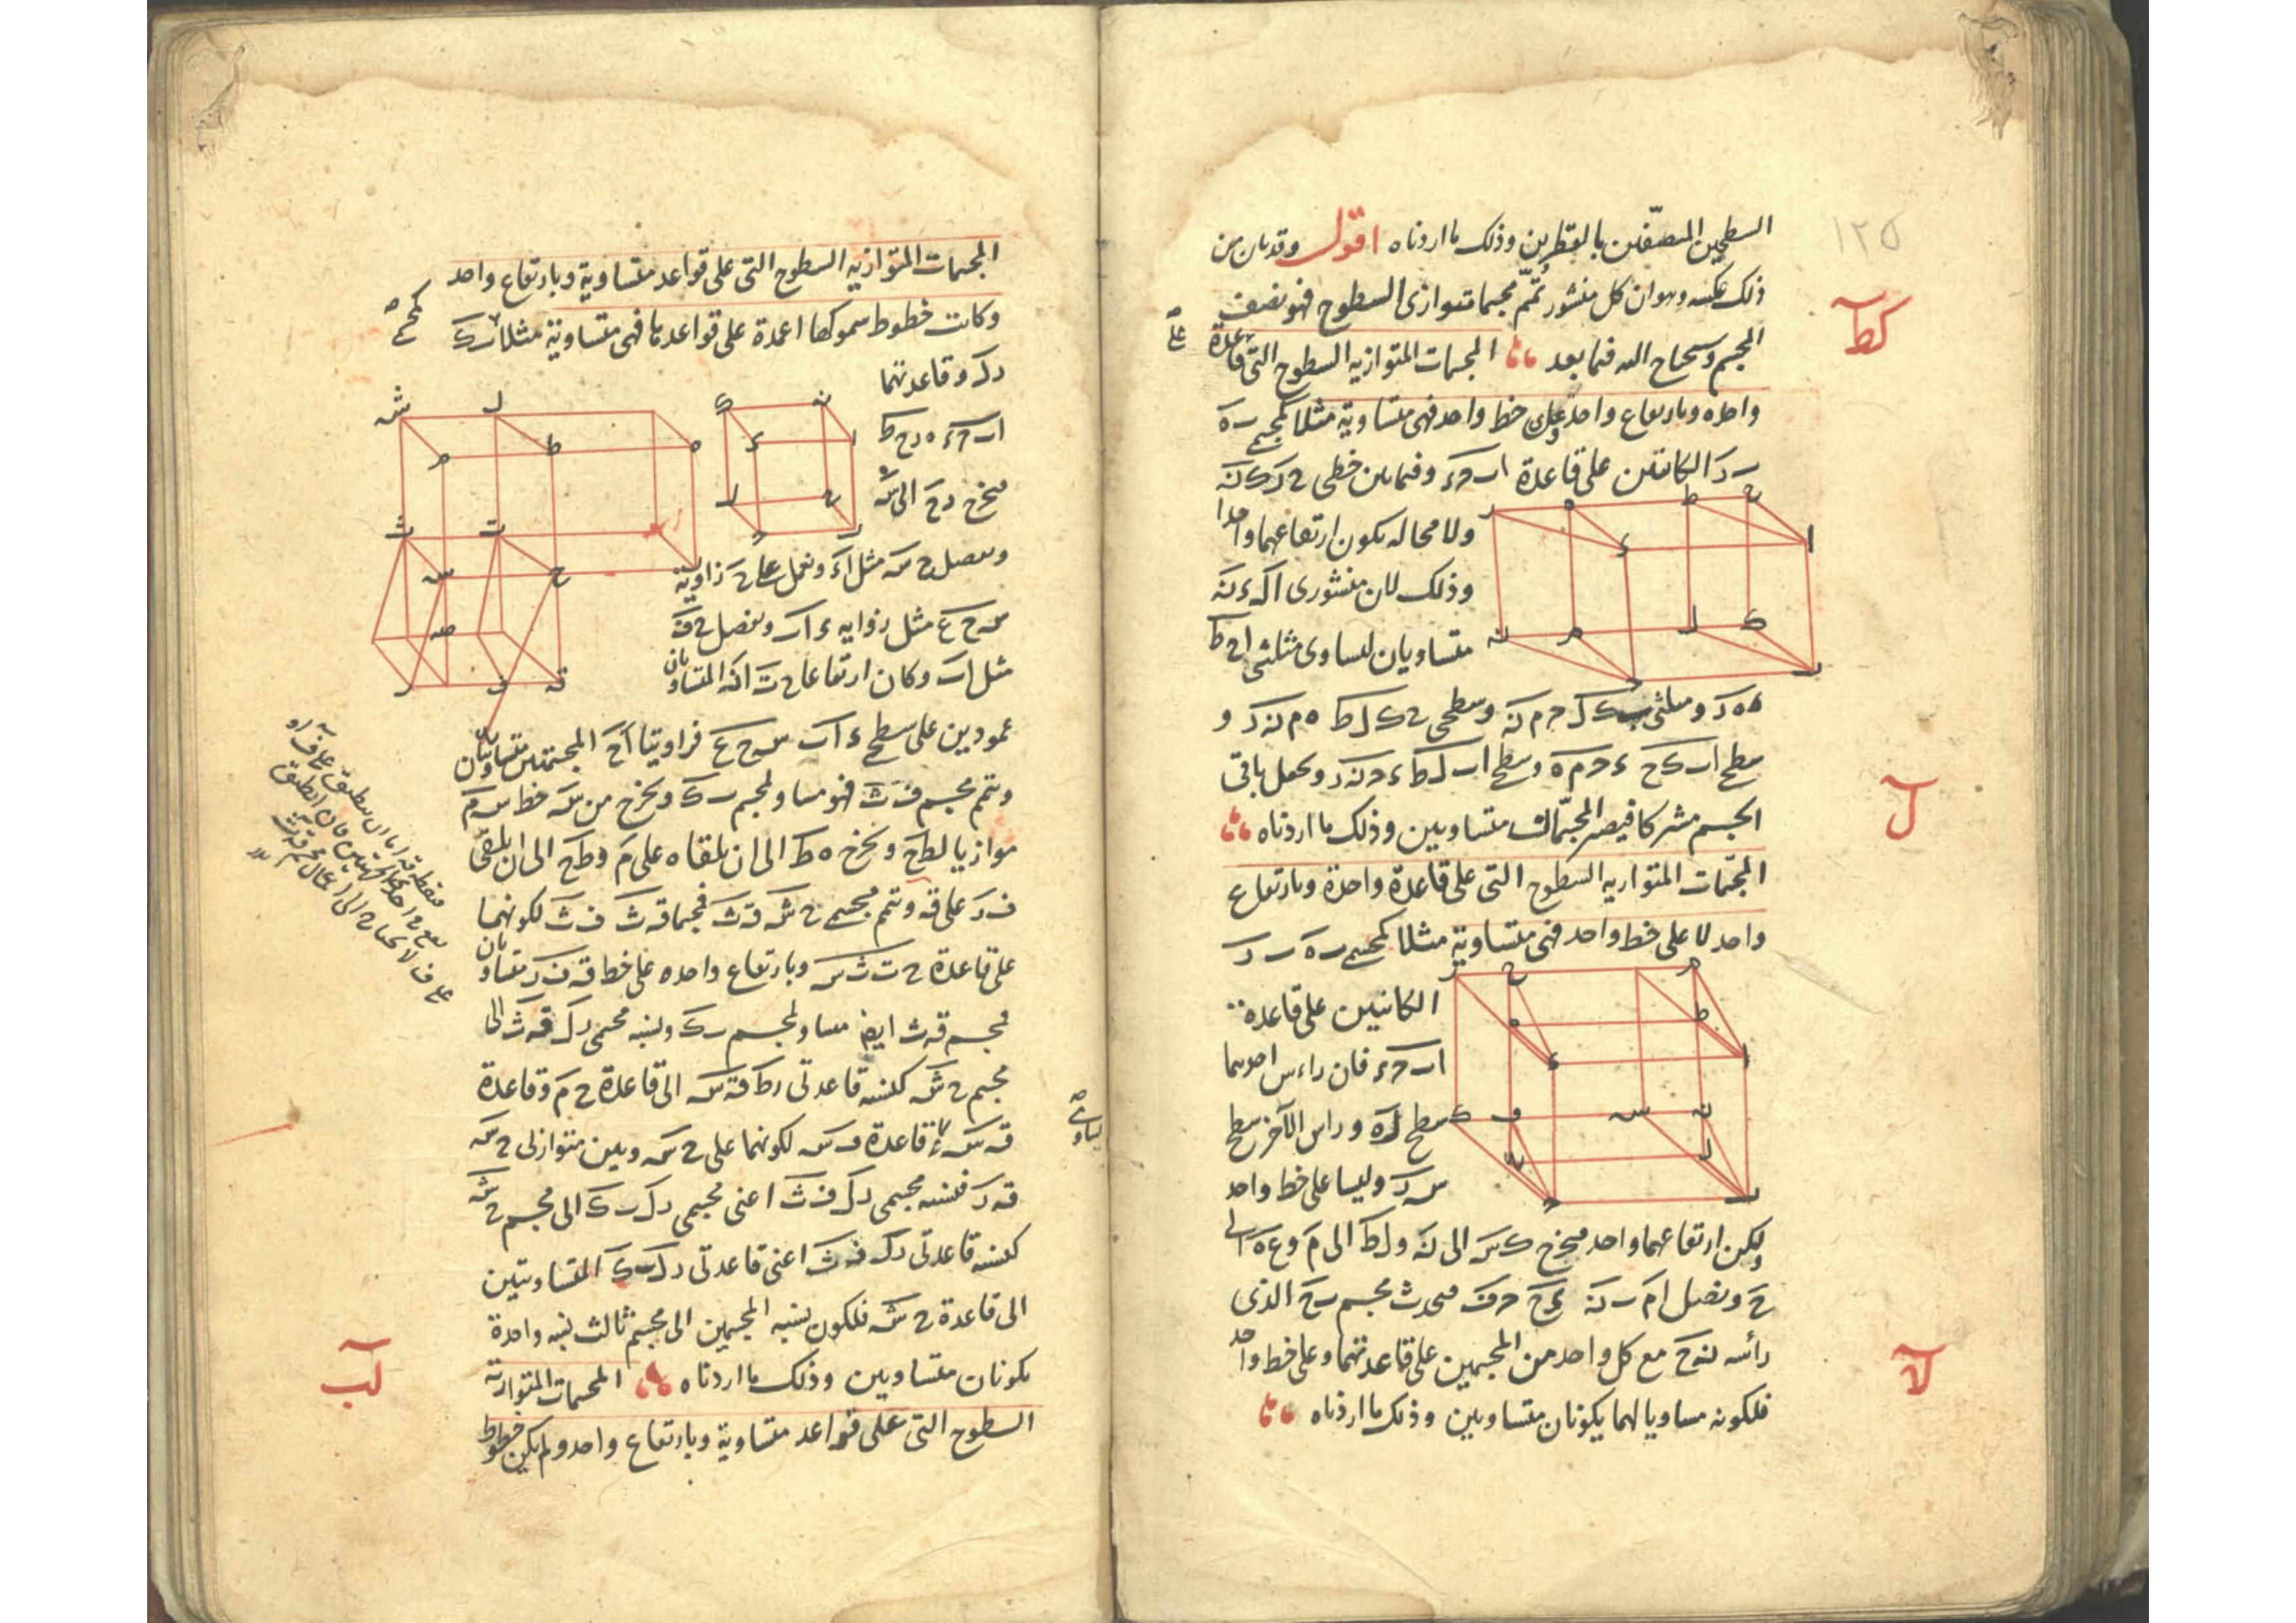 ١٢٥
السطحين المنصفين بالقطرين وذلك ما اردناه اقول وقد بان من
ذلك عكسه وهو ان كل منشور تمم مجسما متوازى السطوح فهو نصف
المجسم وسحتاج اليه فيما بعد المجسمات المتوازيه السطوح التى قاعدة
كط
واحده وبارتفاع واحد وعلى خط واحد فهى متساوية مثلا كمجسمى ب ه
ب ر الكائنين على قاعدة ا ب ح ء وفيما بين خطى ح ر ك ن
ولا محاله يكون ارتفاعهما واحدا
وذلك لان منشورى
متساويان لتساوى مثلثى ا ح ط
ء ه ر ومثلثى ب ك ل ح م ن وسطحى ح ك ل ط ه م ن ر و
سطح ا ب ك ح ء ح م ه وسطح ا ب ل ط ء ح ن ر ونجعل باقى
الجسم مشتركا فيصير المجسمان متساويين وذلك ما اردناه
ل
المجسمات المتوازيه السطوح التى على قاعدة واحدة وبارتفاع
واحد لا على خط واحد فهى متساوية مثلا كمجسمى ب ه ب ر
الكائنين على قاعدة
ا ب ح ء فان راس احدهما
سطح ل ه وراس الآخر سطح
س ر وليسا على خط واحد
ولكن ارتفاعهما واحد فنخرج ك س الى ن ول ط الى م وع ه الى
ح ونصل ا م ب ن ء ح ح ف فيحدث مجسم ب ح الذى
رأسه ن ح مع كل واحد من المجسمين على قاعدتهما وعلى خط واحد
لا
فلكونه مساويا لهما يكونان متساويين وذلك ما اردناه
المجسمات المتوازيه السطوح التى على قواعد متساوية وبارتفاع واحد
وكانت خطوط سموكها اعمدة على قواعدها فهى متساوية مثلا ب ك
كمجسمى
ر ل وقاعدتهما
ا ب ح ء ه ر ح ط
فنخرج ر ح الى س
ونفصل ح س مثل ا ء ونعمل على ح زاوية
س ح ع مثل زاويه ء ا ب ونفصل ح ف
مثل ا ب وكان ارتفاعا ح ت ا ن المتساويان
عمودين على سطحى ء ا ب س ح ع فزاويتا ا ح المجسمتين متساويتان
ونتمم مجسم ف ث فهو مساو لمجسم ب ك ونخرج من س خط س م
موازيا لط ح ونخرج ه ط الى ان يلقاه على م وط ح الى ان يلقى
ف ر على ق ونتمم مجسمى ح ش ق ث فمجسما ق ث ف ث لكونهما
على قاعدة ح ت ث س وبارتفاع واحد وعلى خط ق ف ر متساويان
فمجسم ق ث ايضا مساو لمجسم ب ك ونسبة مجسمى ر ل ق ث الى
مجسم ح ش كنسبة قاعدتى ر ط ق س الى قاعدة ح م وقاعدة
ق س كقاعدة ف س لكونهما على ح س وبين متوازيى ح س
ق ر فنسبة مجسمى ر ل ف ث اعنى مجسمى ر ل ب ك الى مجسم ح ش
كنسبة قاعدتى ر ل ف ث اعنى قاعدتى ر ل ب ك المتساويتين
الى قاعدة ح ش فلكون نسبة المجسمين الى مجسم ثالث نسبة واحدة
يكونان متساويين وذلك ما اردناه المجسمات المتوازيه
لب
السطوح التى على قواعد متساوية وبارتفاع واحد ولم يكن خطوط